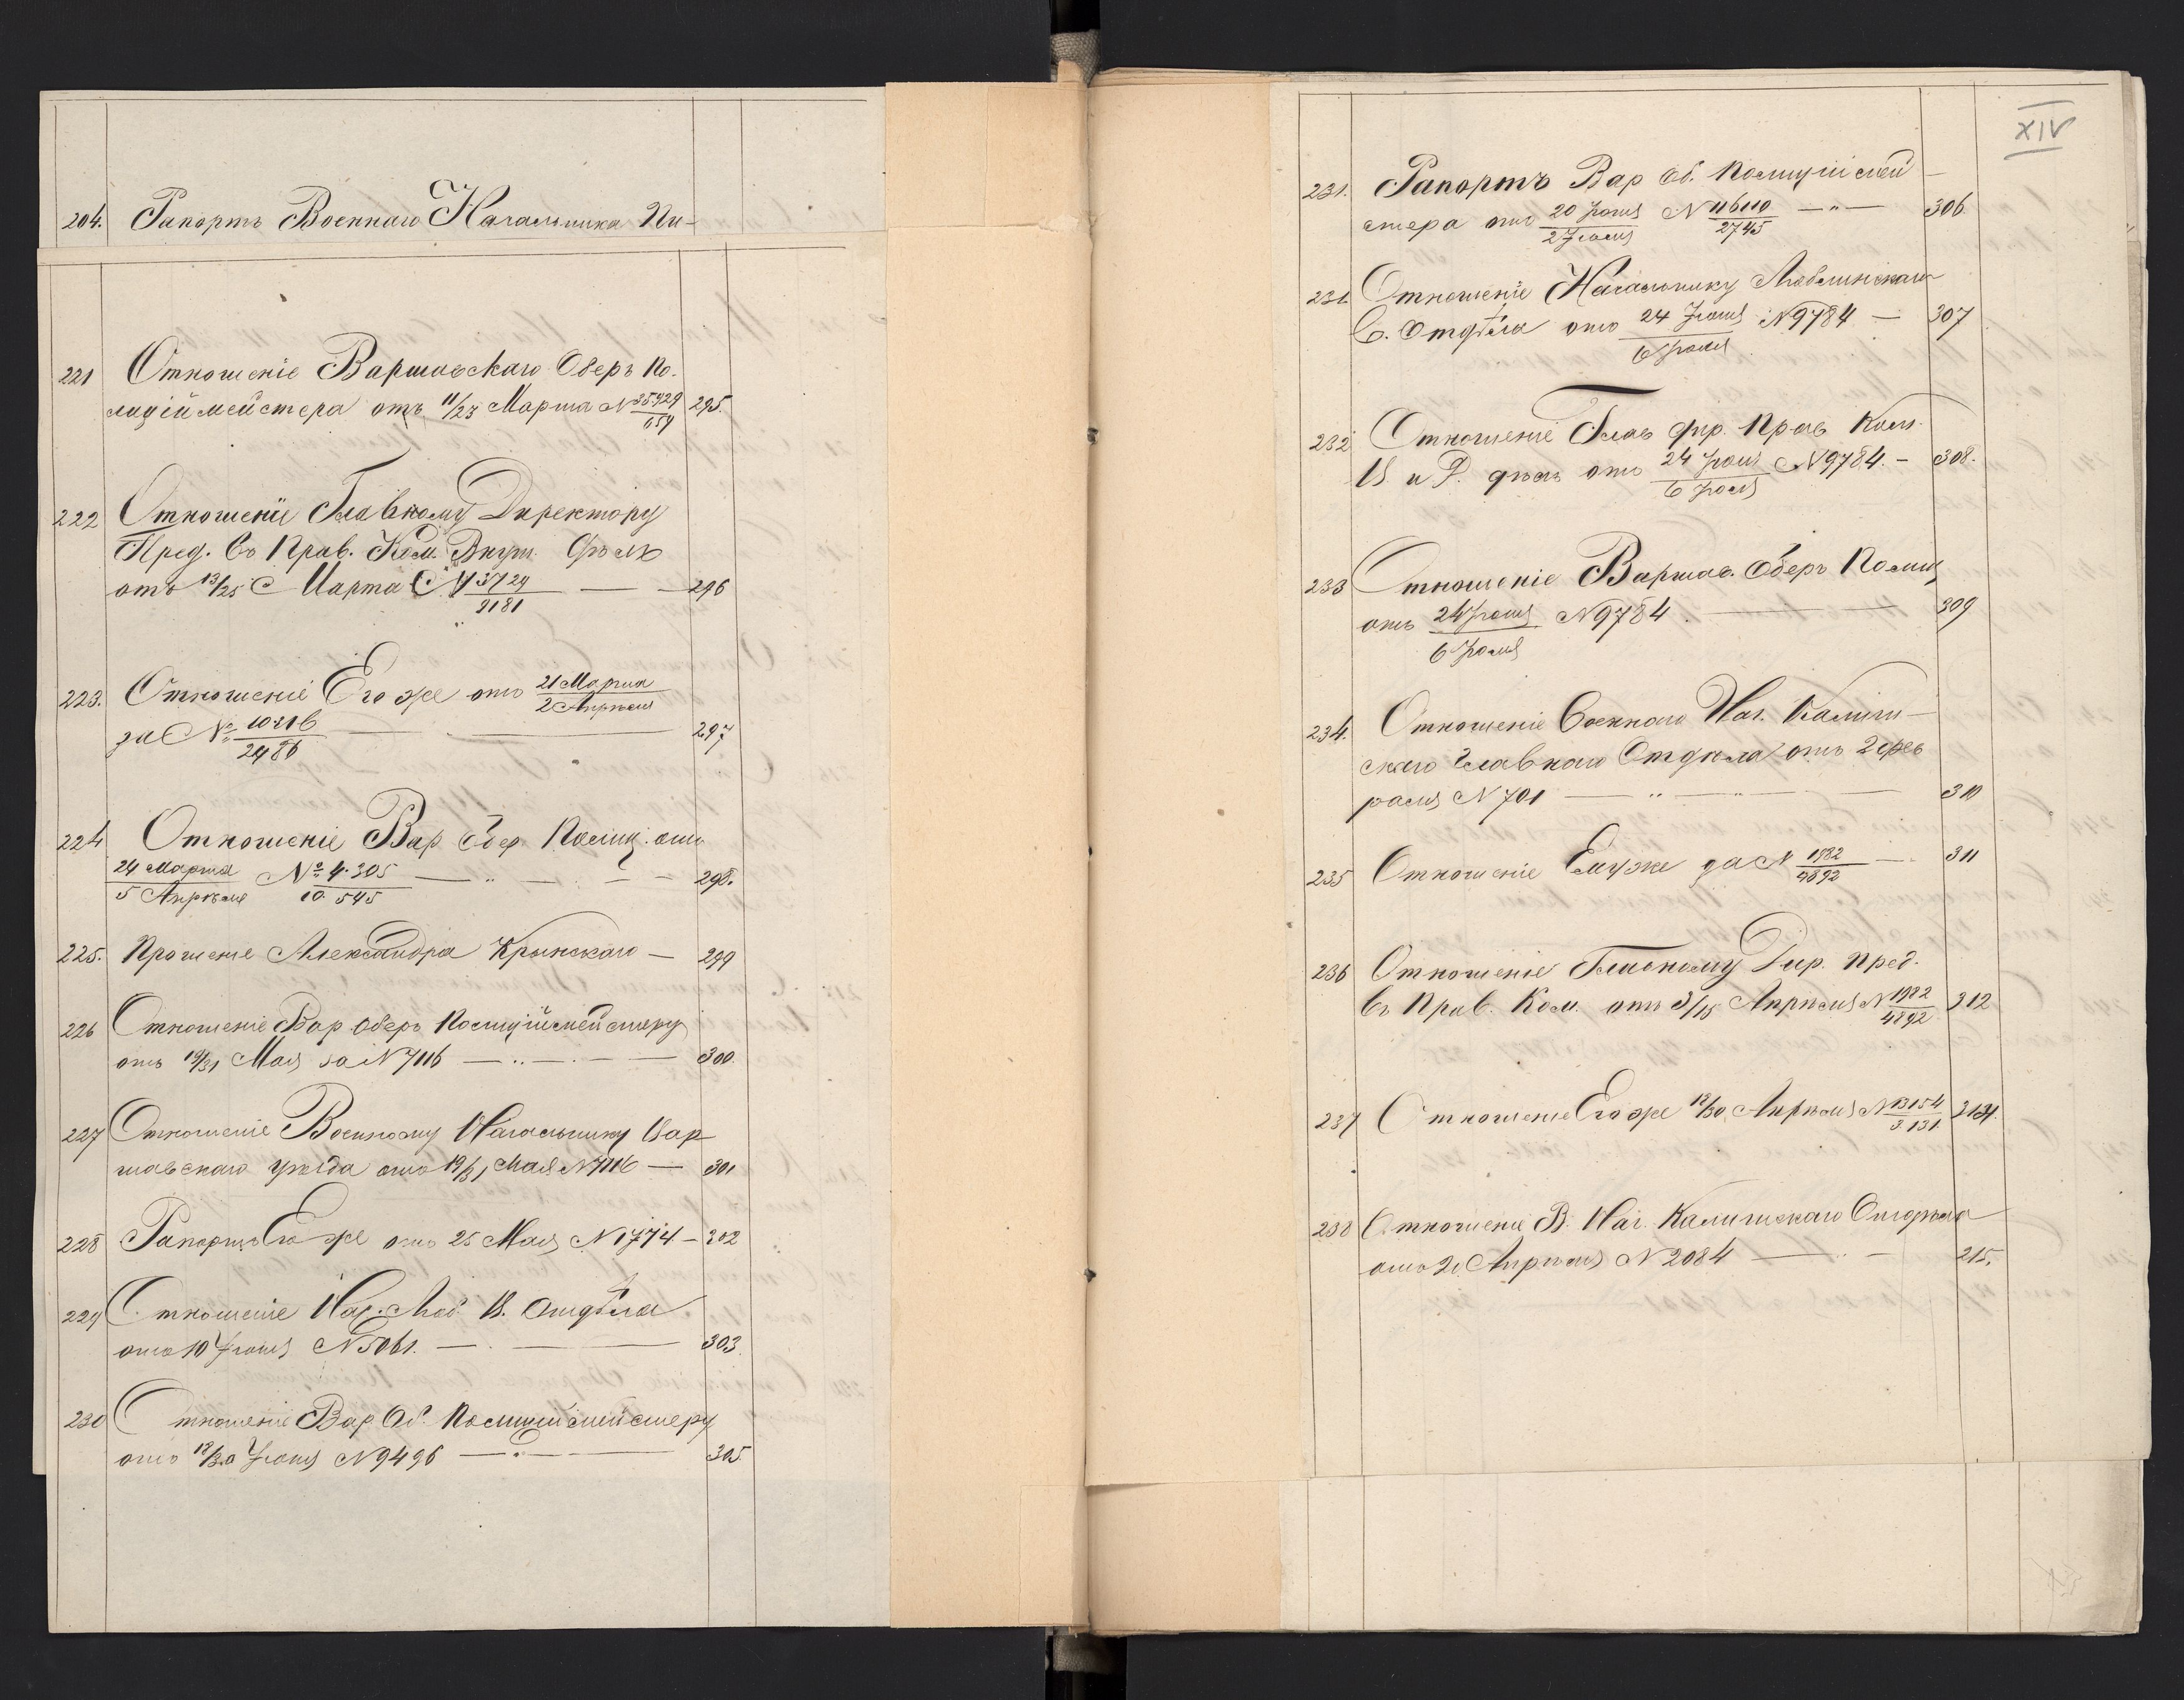 204. Рапортъ Военнаго Начальника Пи-
221 Отношеніе Варшавскаго Оберъ По-
лиціймейстера отъ 11/23 Марта N 35929/659 295.
222 Отношеніе Главному Директору
Пред. въ Прав. Ком. Внут. Дѣлъ
отъ 13/25 Марта N 3724/2181 — — 296
223. Отношеніе Его же отъ 21 Марта/2 Апрѣля
за № 10216/2486 — — 297
224 Отношеніе Вар Обер Полиц. отъ
24 Марта/5 Апрѣля № 4.305/10.545 — „ — — — 298.
225. Прошеніе Александра Крынскаго — 299
226 Отношеніе Вар Оберъ Полиціймейстеру
отъ 19/31 Мая за N 7116 — „ — — — 300.
227 Отношеніе Военному Начальнику Вар
шавскаго уѣзда отъ 19/31 Мая N 7116 — 301
228 Рапортъ Его же отъ 25 Мая N 1774 — 302
229 Отношеніе Нач. Люб. В. Отдѣла
отъ 10 Іюня N 5061. — — 303.
230 Отношеніе Вар Об. Полиціймейстеру
отъ 18/30 Іюня N 9496 — „ — 305
XIV
231. Рапортъ Вар Об. Полиціймей-
стера отъ 20 Іюня/2 Іюля N 116110/2745 — „ — 306
231. Отношеніе Начальнику Люблинскаго
В. Отдѣла отъ 24 Іюня/6 Іюля N 9784 — 307
232 Отношеніе Глав Дир. Прав Ком.
В и Д. дѣлъ отъ 24 Іюня/6 Іюля N 9784. — 308.
233 Отношеніе Варшав. Оберъ Полиц
отъ 24 Іюня/6 Іюля N 9784. — — 309
234. Отношеніе Военнаго Нач. Калиш-
скаго Главнаго Отдѣла отъ 2 Фев
раля N 701 — „ — „ — — 310
235 Отношеніе Ему же за N 1982/4892 — 311
236 Отношеніе Главному Дир. Пред.
въ Прав. Ком. отъ 3/15 Апрѣля N 1982/4892 312
237 Отношеніе Его же 18/30 Апрѣля N 13154/3.131
238 Отношеніе В. Нач. Калишскаго Отдѣла
отъ 21 Апрѣля N 2084 — „ — 215.